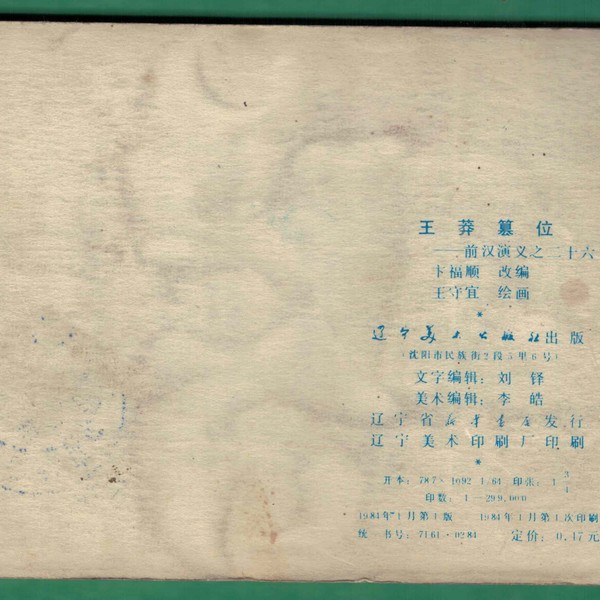 王莽篡位
——前汉演义之二十六
卞福顺 改编
王守宜 绘画
*
辽宁美术出版社出版
(沈阳市民族街2段5里6号)
文字编辑：刘铎
美术编辑：李皓
辽宁省新华书店发行
辽宁美术印刷厂印刷
*
开本：787×1092 1/64 印张：1 3/4
印数：1—299,000
1984年1月第1版 1984年1月第1次印刷
统一书号：7161·0284 定价：0.17元